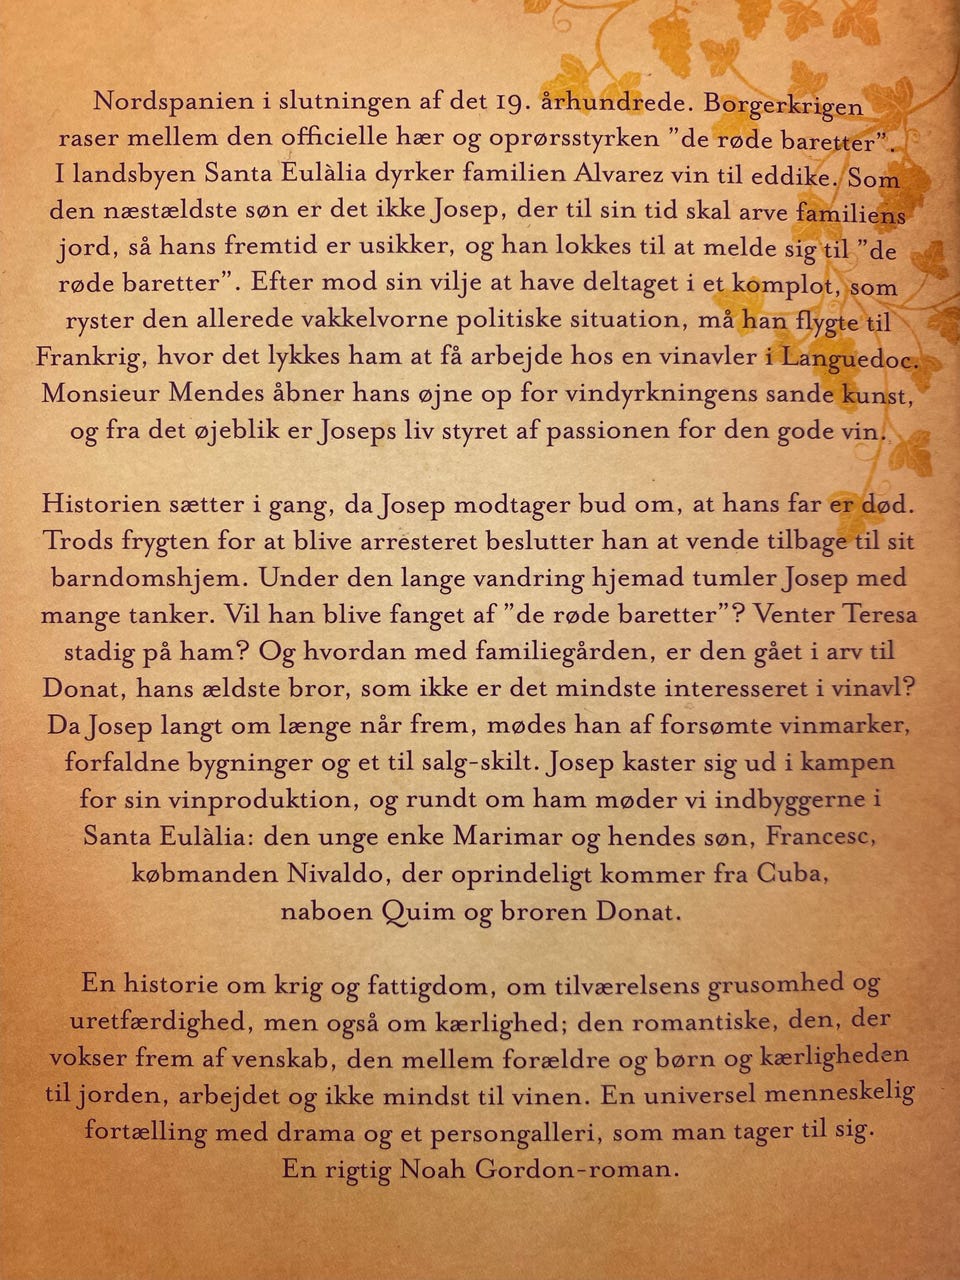 Nordspanien i slutningen af det 19. århundrede. Borgerkrigen
raser mellem den officielle hær og oprørsstyrken ”de røde baretter”.
I landsbyen Santa Eulàlia dyrker familien Alvarez vin til eddike. Som
den næstældste søn er det ikke Josep, der til sin tid skal arve familiens
jord, så hans fremtid er usikker, og han lokkes til at melde sig til ”de
røde baretter”. Efter mod sin vilje at have deltaget i et komplot, som
ryster den allerede vakkelvorne politiske situation, må han flygte til
Frankrig, hvor det lykkes ham at få arbejde hos en vinavler i Languedoc.
Monsieur Mendes åbner hans øjne op for vindyrkningens sande kunst,
og fra det øjeblik er Joseps liv styret af passionen for den gode vin.
Historien sætter i gang, da Josep modtager bud om, at hans far er død.
Trods frygten for at blive arresteret beslutter han at vende tilbage til sit
barndomshjem. Under den lange vandring hjemad tumler Josep med
mange tanker. Vil han blive fanget af ”de røde baretter”? Venter Teresa
stadig på ham? Og hvordan med familiegården, er den gået i arv til
Donat, hans ældste bror, som ikke er det mindste interesseret i vinavl?
Da Josep langt om længe når frem, mødes han af forsømte vinmarker,
forfaldne bygninger og et til salg-skilt. Josep kaster sig ud i kampen
for sin vinproduktion, og rundt om ham møder vi indbyggerne i
Santa Eulàlia: den unge enke Marimar og hendes søn, Francesc,
købmanden Nivaldo, der oprindeligt kommer fra Cuba,
naboen Quim og broren Donat.
En historie om krig og fattigdom, om tilværelsens grusomhed og
uretfærdighed, men også om kærlighed; den romantiske, den, der
vokser frem af venskab, den mellem forældre og børn og kærligheden
til jorden, arbejdet og ikke mindst til vinen. En universel menneskelig
fortælling med drama og et persongalleri, som man tager til sig.
En rigtig Noah Gordon-roman.